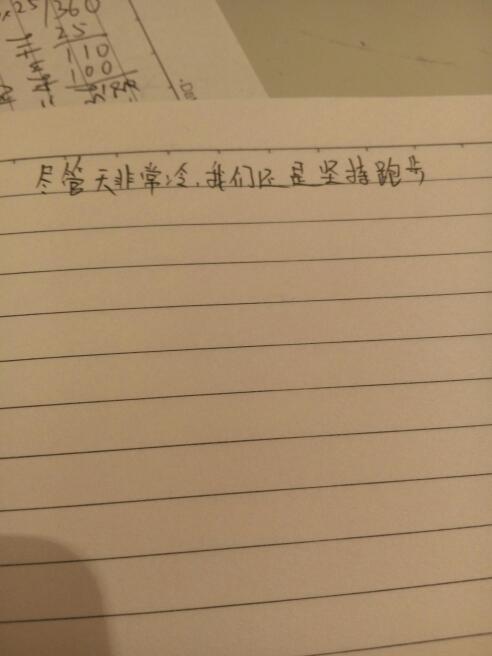 25/360
25
110
100
尽管天非常冷,我们还是坚持跑步